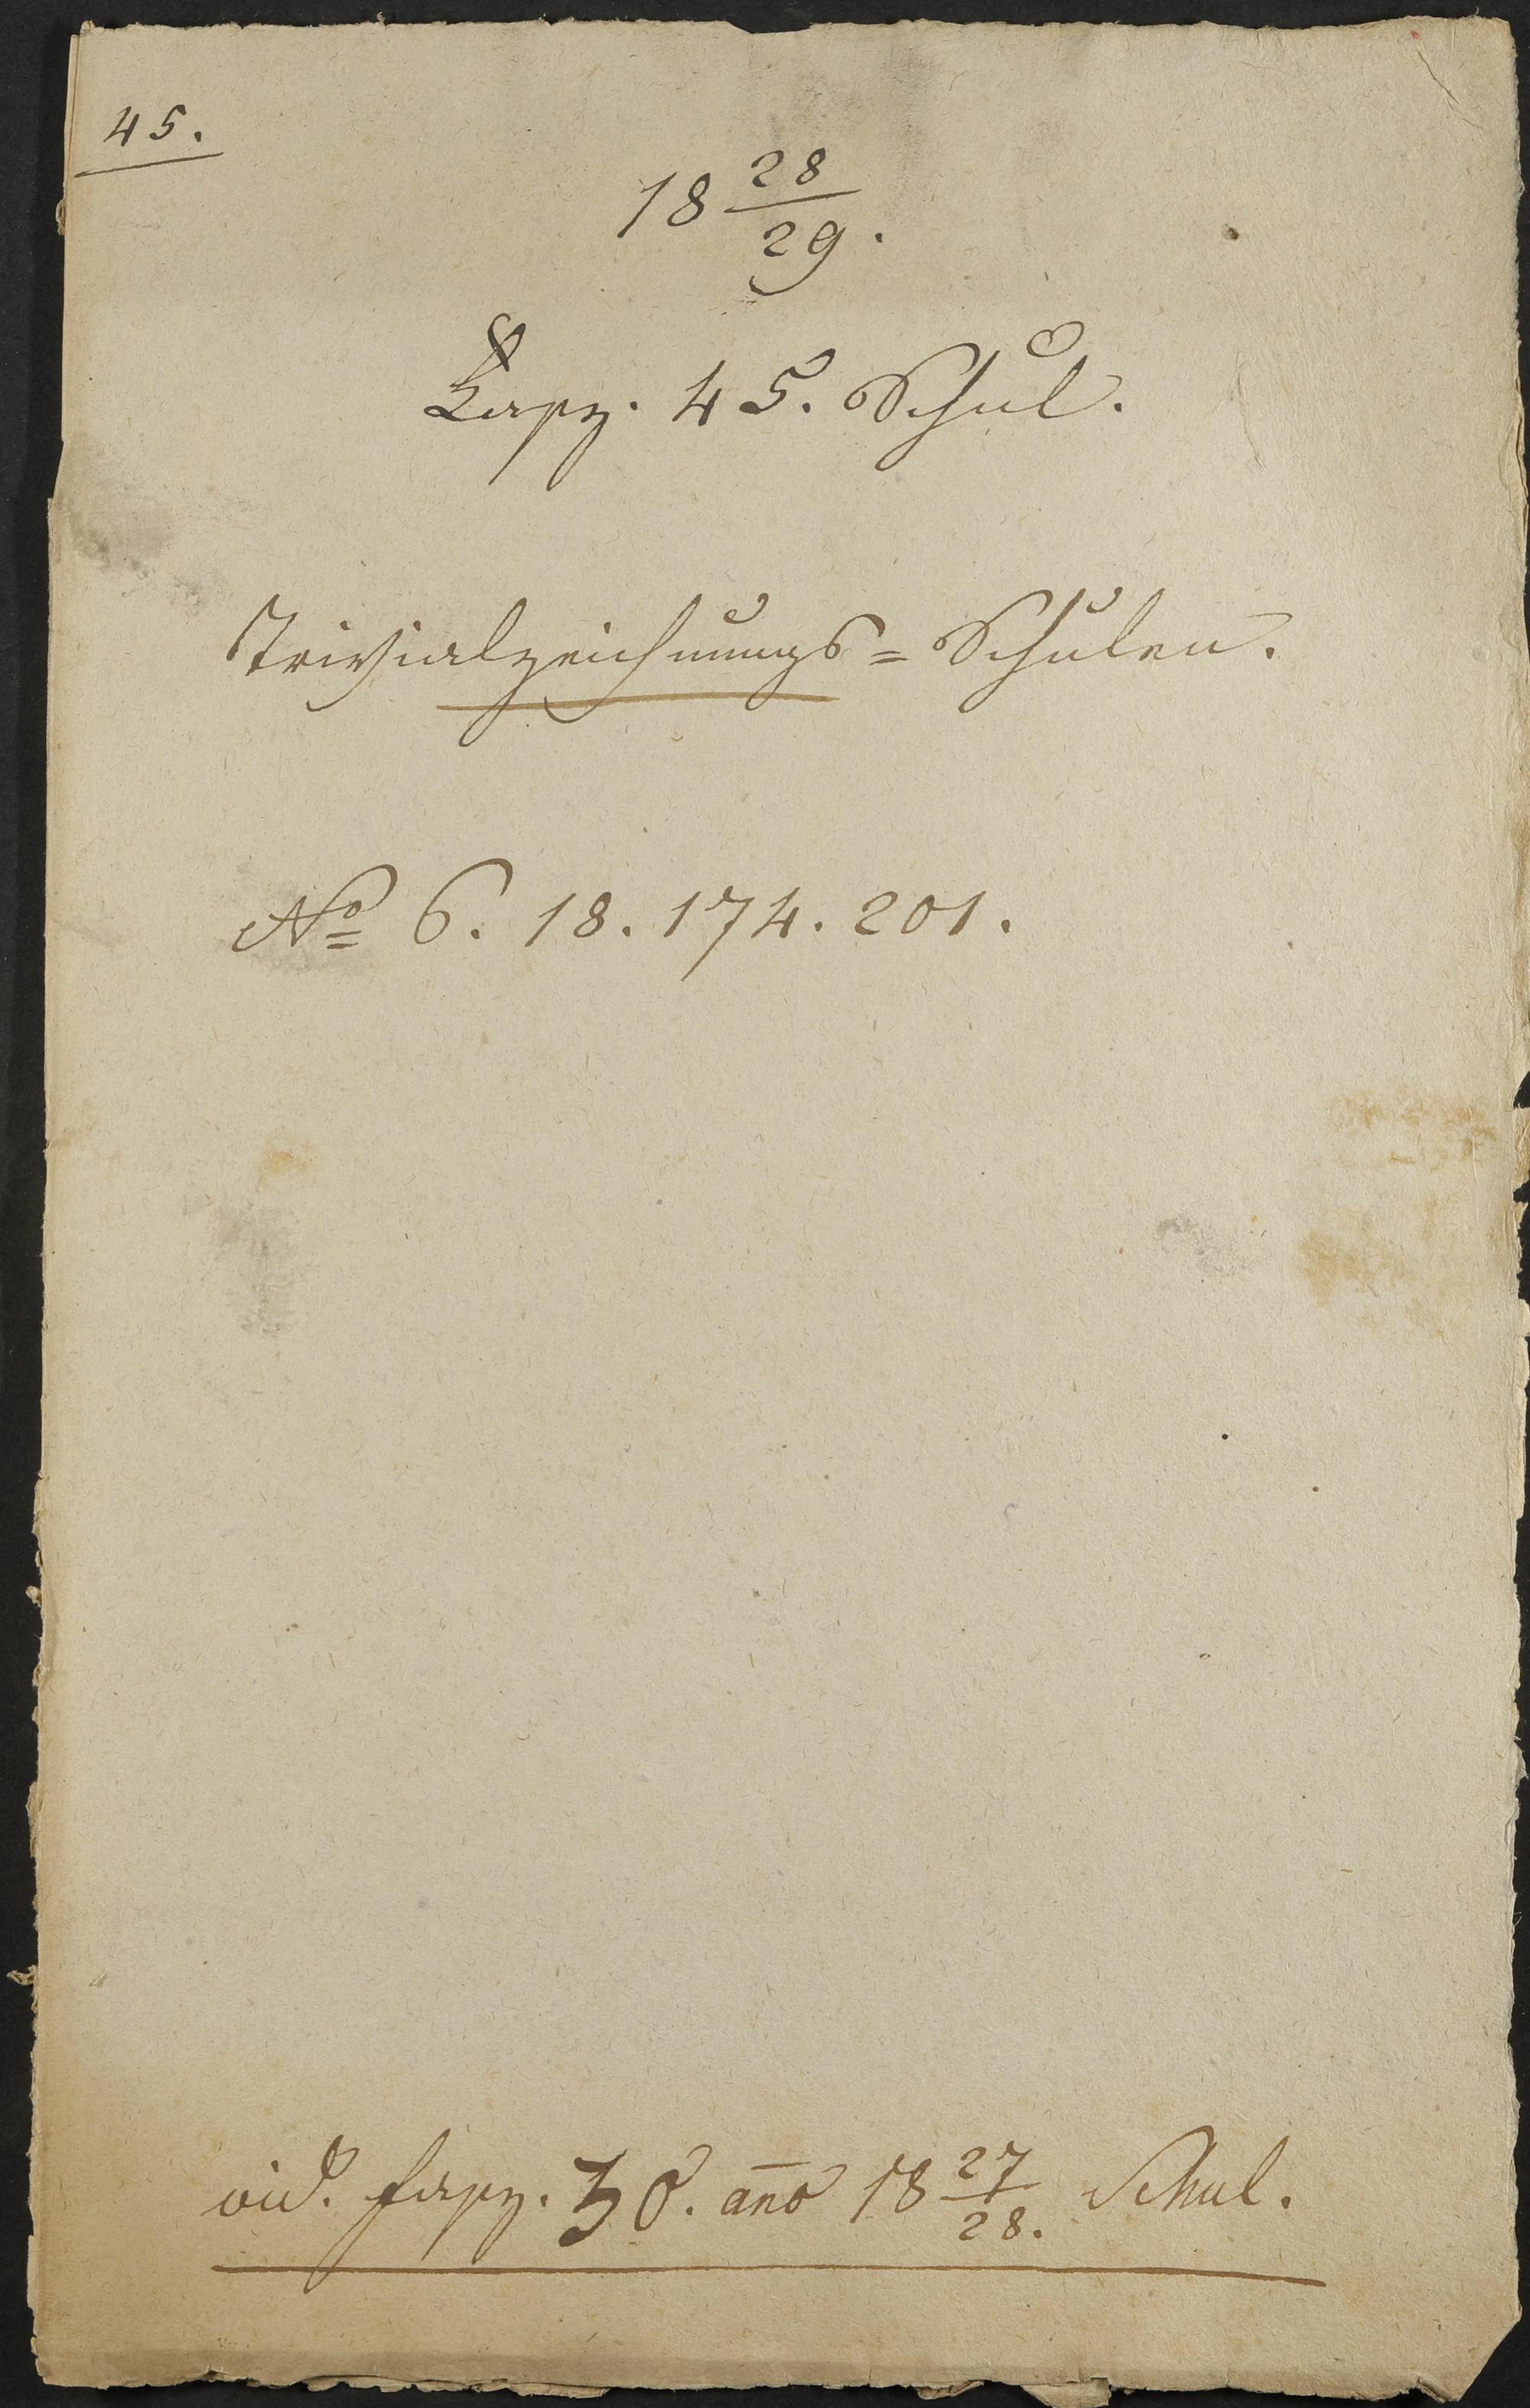 45.
18 28/29.
Fasz. 45. Schul.
Trivialzeichnungs=Schulen.
No 6. 18. 174. 201.
vid. fasz. 30. ano 18 27/28. Schul.